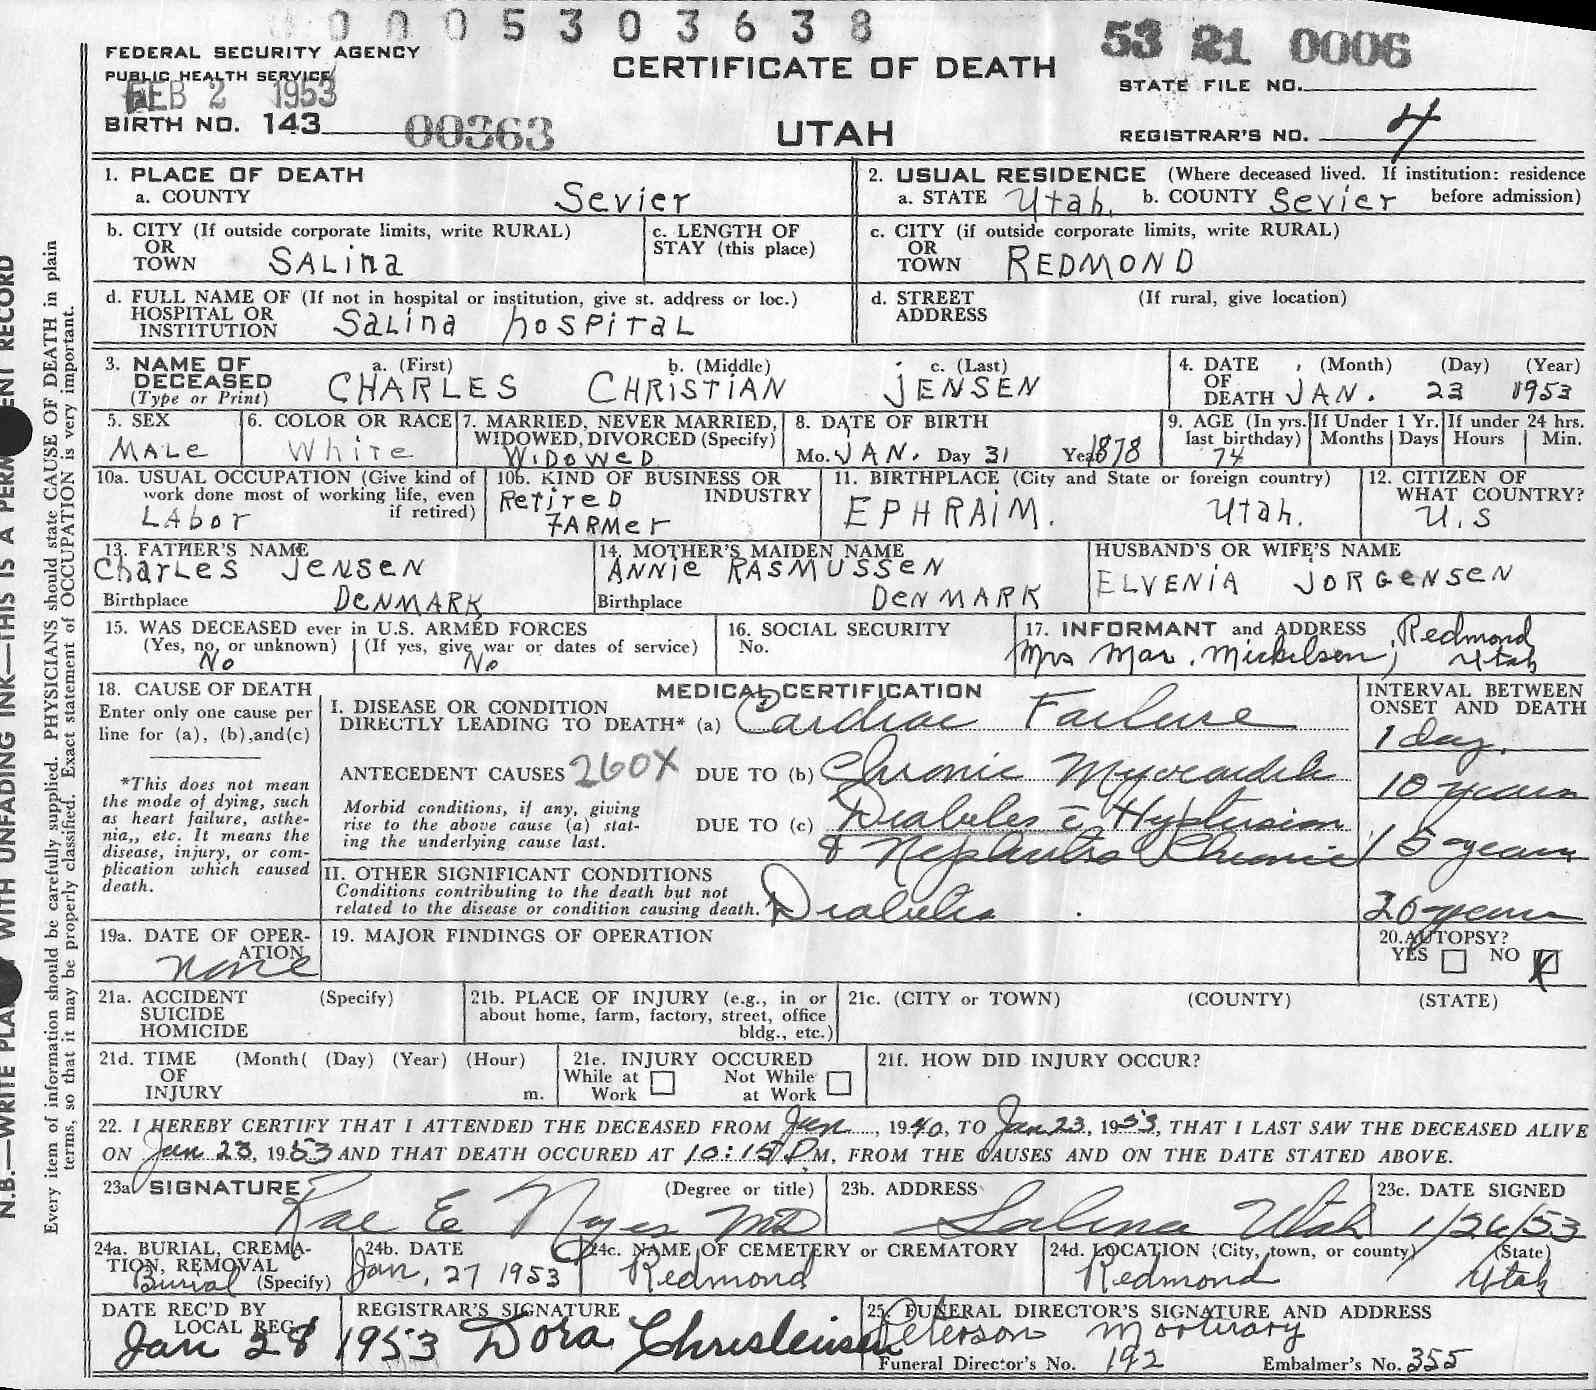 0 0 0 5 3 0 3 6 3 8
53 21 0006
FEDERAL SECURITY AGENCY
PUBLIC HEALTH SERVICE
FEB 2 1953
CERTIFICATE OF DEATH
STATE FILE NO.
BIRTH NO. 143 00363
UTAH
REGISTRAR'S NO. 4
1. PLACE OF DEATH
a. COUNTY Sevier
2. USUAL RESIDENCE (Where deceased lived. If institution: residence before admission)
a. STATE Utah. b. COUNTY Sevier
b. CITY (If outside corporate limits, write RURAL)
OR
TOWN SALina
c. LENGTH OF
STAY (this place)
c. CITY (if outside corporate limits, write RURAL)
OR
TOWN REDMOND
d. FULL NAME OF (If not in hospital or institution, give st. address or loc.)
HOSPITAL OR
INSTITUTION Salina hospital
d. STREET (If rural, give location)
ADDRESS
3. NAME OF
DECEASED
(Type or Print)
a. (First) b. (Middle) c. (Last)
CHARLES CHRISTIAN JENSEN
4. DATE (Month) (Day) (Year)
OF
DEATH JAN. 23 1953
5. SEX
MALE
6. COLOR OR RACE
White
7. MARRIED, NEVER MARRIED,
WIDOWED, DIVORCED (Specify)
WIDOWED
8. DATE OF BIRTH
Mo. JAN. Day 31 Year 1878
9. AGE (In yrs. last birthday)
74
If Under 1 Yr.
Months Days
If under 24 hrs.
Hours Min.
10a. USUAL OCCUPATION (Give kind of
work done most of working life, even
if retired)
LABor
10b. KIND OF BUSINESS OR
INDUSTRY
RetireD
FARMer
11. BIRTHPLACE (City and State or foreign country)
EPHRAIM. Utah.
12. CITIZEN OF
WHAT COUNTRY?
U.S
13. FATHER'S NAME
CharLES JENSEN
Birthplace DENMARK
14. MOTHER'S MAIDEN NAME
ANNIE RASMUSSEN
Birthplace DENMARK
HUSBAND'S OR WIFE'S NAME
ELVENIA JORGENSEN
15. WAS DECEASED ever in U.S. ARMED FORCES
(Yes, no, or unknown) (If yes, give war or dates of service)
No No
16. SOCIAL SECURITY
No.
17. INFORMANT and ADDRESS Redmond
Mrs Mar. Mickelsen, Utah
18. CAUSE OF DEATH
Enter only one cause per
line for (a), (b), and(c)
*This does not mean
the mode of dying, such
as heart failure, asthe-
nia,, etc. It means the
disease, injury, or com-
plication which caused
death.
MEDICAL CERTIFICATION
I. DISEASE OR CONDITION
DIRECTLY LEADING TO DEATH* (a) Cardiac Failure
ANTECEDENT CAUSES 260X DUE TO (b) Chronic Myocarditis
Morbid conditions, if any, giving
rise to the above cause (a) stat-
ing the underlying cause last.
DUE TO (c) Diabetes c̄ Hypertension
& Nephritis Chronic
II. OTHER SIGNIFICANT CONDITIONS
Conditions contributing to the death but not
related to the disease or condition causing death. Diabetes
INTERVAL BETWEEN
ONSET AND DEATH
1 day.
10 years
15 years
20 years
19a. DATE OF OPER-
ATION
none
19. MAJOR FINDINGS OF OPERATION
20. AUTOPSY?
YES NO X
21a. ACCIDENT (Specify)
SUICIDE
HOMICIDE
21b. PLACE OF INJURY (e.g., in or
about home, farm, factory, street, office
bldg., etc.)
21c. (CITY or TOWN) (COUNTY) (STATE)
21d. TIME (Month( (Day) (Year) (Hour)
OF
INJURY m.
21e. INJURY OCCURED
While at Work Not While at Work
21f. HOW DID INJURY OCCUR?
22. I HEREBY CERTIFY THAT I ATTENDED THE DECEASED FROM Jan, 1940, TO Jan 23, 1953, THAT I LAST SAW THE DECEASED ALIVE
ON Jan 23, 1953 AND THAT DEATH OCCURED AT 10:15 P M, FROM THE CAUSES AND ON THE DATE STATED ABOVE.
23a SIGNATURE (Degree or title)
Rae E Noyes MD
23b. ADDRESS
Salina Utah
23c. DATE SIGNED
1/26/53
24a. BURIAL, CREMA-
TION, REMOVAL
Burial (Specify)
24b. DATE
Jan. 27 1953
24c. NAME OF CEMETERY or CREMATORY
Redmond
24d. LOCATION (City, town, or county) (State)
Redmond Utah
DATE REC'D BY
LOCAL REG.
Jan 28 1953
REGISTRAR'S SIGNATURE
Dora Christensen
25. FUNERAL DIRECTOR'S SIGNATURE AND ADDRESS
Peterson Mortuary
Funeral Director's No. 192 Embalmer's No. 355
N.B.—WRITE WITH UNFADING INK—THIS IS A RECORD
Every item of information should be carefully supplied. PHYSICIANS should state CAUSE OF DEATH in plain
terms, so that it may be properly classified. Exact statement of OCCUPATION is very important.